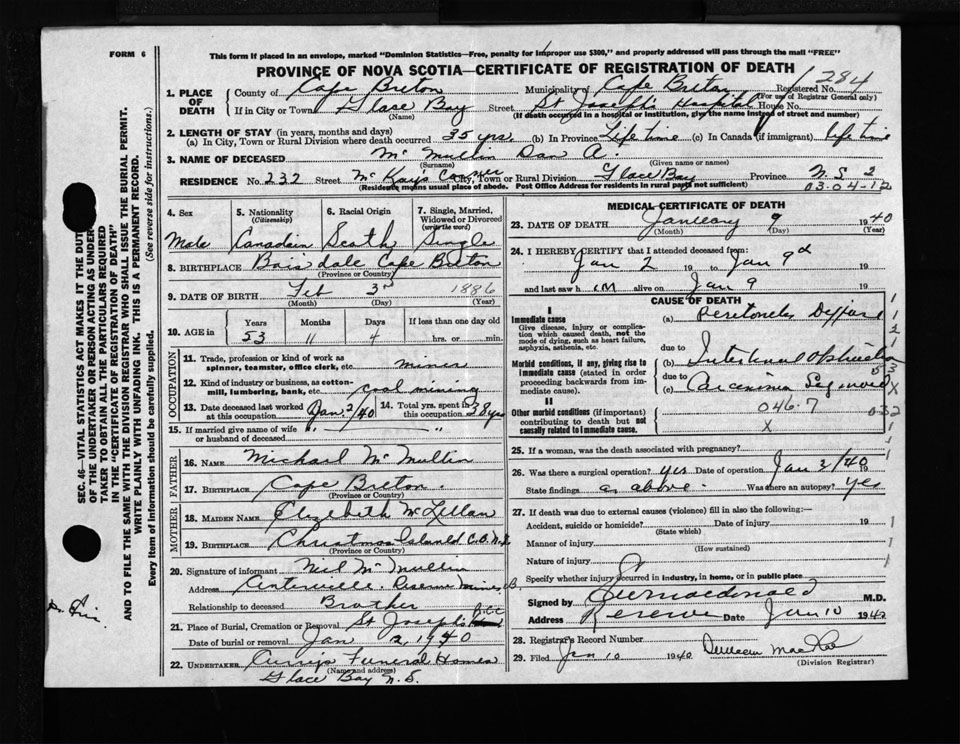 FORM 6
This form if placed in an envelope, marked "Dominion Statistics—Free, penalty for improper use $300," and properly addressed will pass through the mail "FREE"
PROVINCE OF NOVA SCOTIA—CERTIFICATE OF REGISTRATION OF DEATH
284
1. PLACE OF DEATH County of Cape Breton Municipality of Cape Breton Registered No.
(For use of Registrar General only)
If in City or Town Glace Bay Street St Joseph's Hospital House No.
(Name) (If death occurred in a hospital or institution, give the name instead of street and number)
2. LENGTH OF STAY (in years, months and days)
(a) In City, Town or Rural Division where death occurred 35 yrs. (b) In Province Life time (c) In Canada (if immigrant) life time
3. NAME OF DECEASED Mc Mullin Dan A.
(Surname) (Given name or names)
RESIDENCE No. 232 Street McKay's Corner City, Town or Rural Division Glace Bay Province N.S. 2
(Residence means usual place of abode. Post Office Address for residents in rural parts not sufficient)
03-04-12
SEC. 46—VITAL STATISTICS ACT MAKES IT THE DUTY
OF THE UNDERTAKER OR PERSON ACTING AS UNDER
TAKER TO OBTAIN ALL THE PARTICULARS REQUIRED
IN THE "CERTIFICATE OF REGISTRATION OF DEATH"
AND TO FILE THE SAME WITH THE DIVISION REGISTRAR WHO SHALL ISSUE THE BURIAL PERMIT.
WRITE PLAINLY WITH UNFADING INK. THIS IS A PERMANENT RECORD.
Every item of information should be carefully supplied. (See reverse side for instructions.)
4. Sex 5. Nationality (Citizenship) 6. Racial Origin 7. Single, Married, Widowed or Divorced (write the word)
Male Canadain Scoth Single
8. BIRTHPLACE Boisdale Cape Breton
(Province or Country)
9. DATE OF BIRTH Feb 3rd 1886
(Month) (Day) (Year)
10. AGE in Years Months Days If less than one day old
53 11 4 hrs. or min.
OCCUPATION
11. Trade, profession or kind of work as spinner, teamster, office clerk, etc. miner
12. Kind of industry or business, as cotton-mill, lumbering, bank, etc. coal mining
13. Date deceased last worked at this occupation Jan 2/40 14. Total yrs. spent in this occupation 38 yrs
15. If married give name of wife or husband of deceased
FATHER
16. NAME Michael McMullin
17. BIRTHPLACE Cape Breton
(Province or Country)
MOTHER
18. MAIDEN NAME Elizebeth McLellan
19. BIRTHPLACE Christmas Island C.B. N.S
(Province or Country)
20. Signature of informant Neil McMullin
Address Centerville, Reserve Mines, C.B.
Relationship to deceased Brother
21. Place of Burial, Cremation or Removal St Josephs
Date of burial or removal Jan 1940
22. UNDERTAKER Currys Funeral Homes
(Name and address)
Glace Bay N.S.
MEDICAL CERTIFICATE OF DEATH
23. DATE OF DEATH January 9 1940
(Month) (Day) (Year)
24. I HEREBY CERTIFY that I attended deceased from:
Jan 2 19 to Jan 9th 19
and last saw h im alive on Jan 9 19
CAUSE OF DEATH
I
Immediate cause (a) Peritonitis Diffuse
Give disease, injury or complication which caused death, not the mode of dying, such as heart failure, asphyxia, asthenia, etc.
due to
Morbid conditions, if any, giving rise to immediate cause (stated in order proceeding backwards from immediate cause). (b) Intestinal Obstruction
due to
(c) Carcinoma Sigmoid
II
Other morbid conditions (if important) contributing to death but not causally related to immediate cause.
046.7
X
032
25. If a woman, was the death associated with pregnancy?
26. Was there a surgical operation? yes Date of operation Jan 3/40 19
State findings as above. Was there an autopsy? yes
27. If death was due to external causes (violence) fill in also the following:—
Accident, suicide or homicide? Date of injury 19
(State which)
Manner of injury
(How sustained)
Nature of injury
Specify whether injury occurred in industry, in home, or in public place
Signed by Macdonald M.D.
Address Reserve Date Jan 10 1940
28. Registrar's Record Number
29. Filed Jan 10 1940 Duncan MacRae
(Division Registrar)